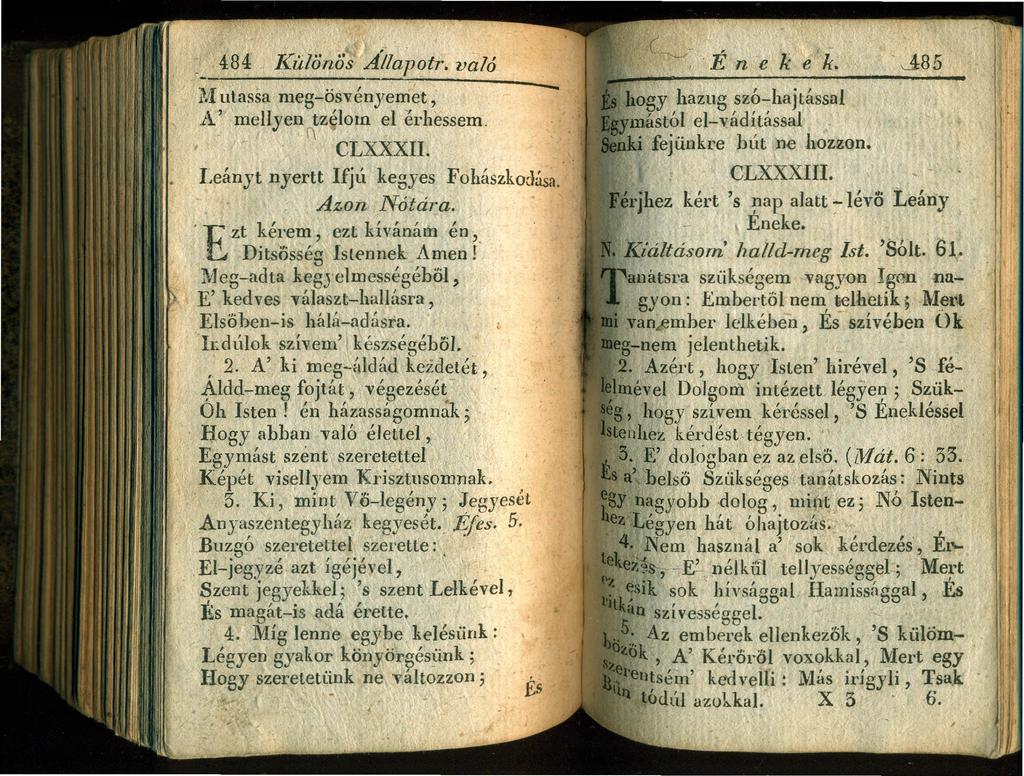 484 Különös Állapotr. való
Mutassa meg-ösvényemet,
A' mellyen tzélom el érhessem.
CLXXXII.
Leányt nyertt Ifjú kegyes Fohászkodása.
Azon Nótára.
Ezt kérem, ezt kívánám én,
Ditsősség Istennek Amen!
Meg-adta kegyelmességéből,
E' kedves választ-hallásra,
Elsőben-is hálá-adásra.
Indúlok szívem' készségéből.
2. A' ki meg-áldád kezdetét,
Áldd-meg fojtát, végezését
Óh Isten! én házasságomnak;
Hogy abban való élettel,
Egymást szent szeretettel
Képét visellyem Krisztusomnak.
3. Ki, mint Vő-legény; Jegyesét
Anyaszentegyház kegyesét. Éfes. 5.
Buzgó szeretettel szerette:
El-jegyzé azt ígéjével,
Szent jegyekkel; 's szent Lelkével,
És magát-is adá érette.
4. Míg lenne egybe kelésünk:
Légyen gyakor könyörgésünk;
Hogy szeretetünk ne változzon;
És
Énekek. 485
És hogy hazug szó-hajtással
Egymástól el-vádítással
Senki fejünkre bút ne hozzon.
CLXXXIII.
Férjhez kért 's nap alatt-lévő Leány
Éneke.
N. Kiáltásom' halld-meg Ist. 'Sólt. 61.
Tanátsra szükségem vagyon Igen na-
gyon: Embertől nem telhetik; Mert
mi van ember lelkében, És szívében Ok
meg-nem jelenthetik.
2. Azért, hogy Isten' hirével, 'S fé-
lelmével Dolgom intézett légyen; Szük-
ség, hogy szívem kéréssel, 'S Énekléssel
Istenhez kérdést tégyen.
3. E' dologban ez az első. (Mát. 6: 33.
És a' belső Szükséges tanátskozás: Nints
egy nagyobb dolog, mint ez; Nó Isten-
hez Légyen hát óhajtozás.
4. Nem használ a' sok kérdezés, Ér-
tekezés, E' nélkűl tellyességgel; Mert
ez esik sok hívsággal Hamissággal, És
ritkán szívességgel.
5. Az emberek ellenkezők, 'S külöm-
bözők, A' Kérőről voxokkal, Mert egy
szerentsém' kedvelli: Más irígyli, Tsak
Bún tódúl azokkal. X 3 6.